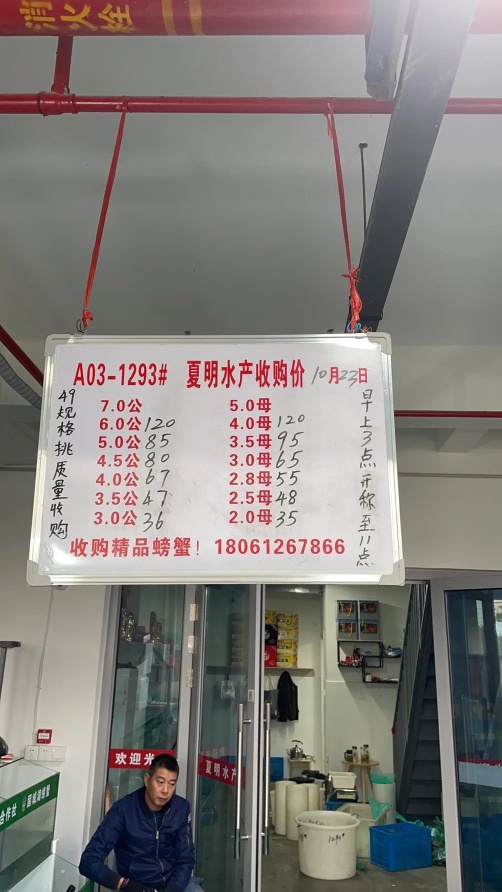 消火栓
A03-1293# 夏明水产收购价 10月23日
49规格挑质量收购
7.0公 5.0母
6.0公 120 4.0母 120
5.0公 85 3.5母 95
4.5公 80 3.0母 65
4.0公 67 2.8母 55
3.5公 47 2.5母 48
3.0公 36 2.0母 35
早上3点开称至11点
收购精品螃蟹! 18061267866
欢迎光
夏明水产
合作社